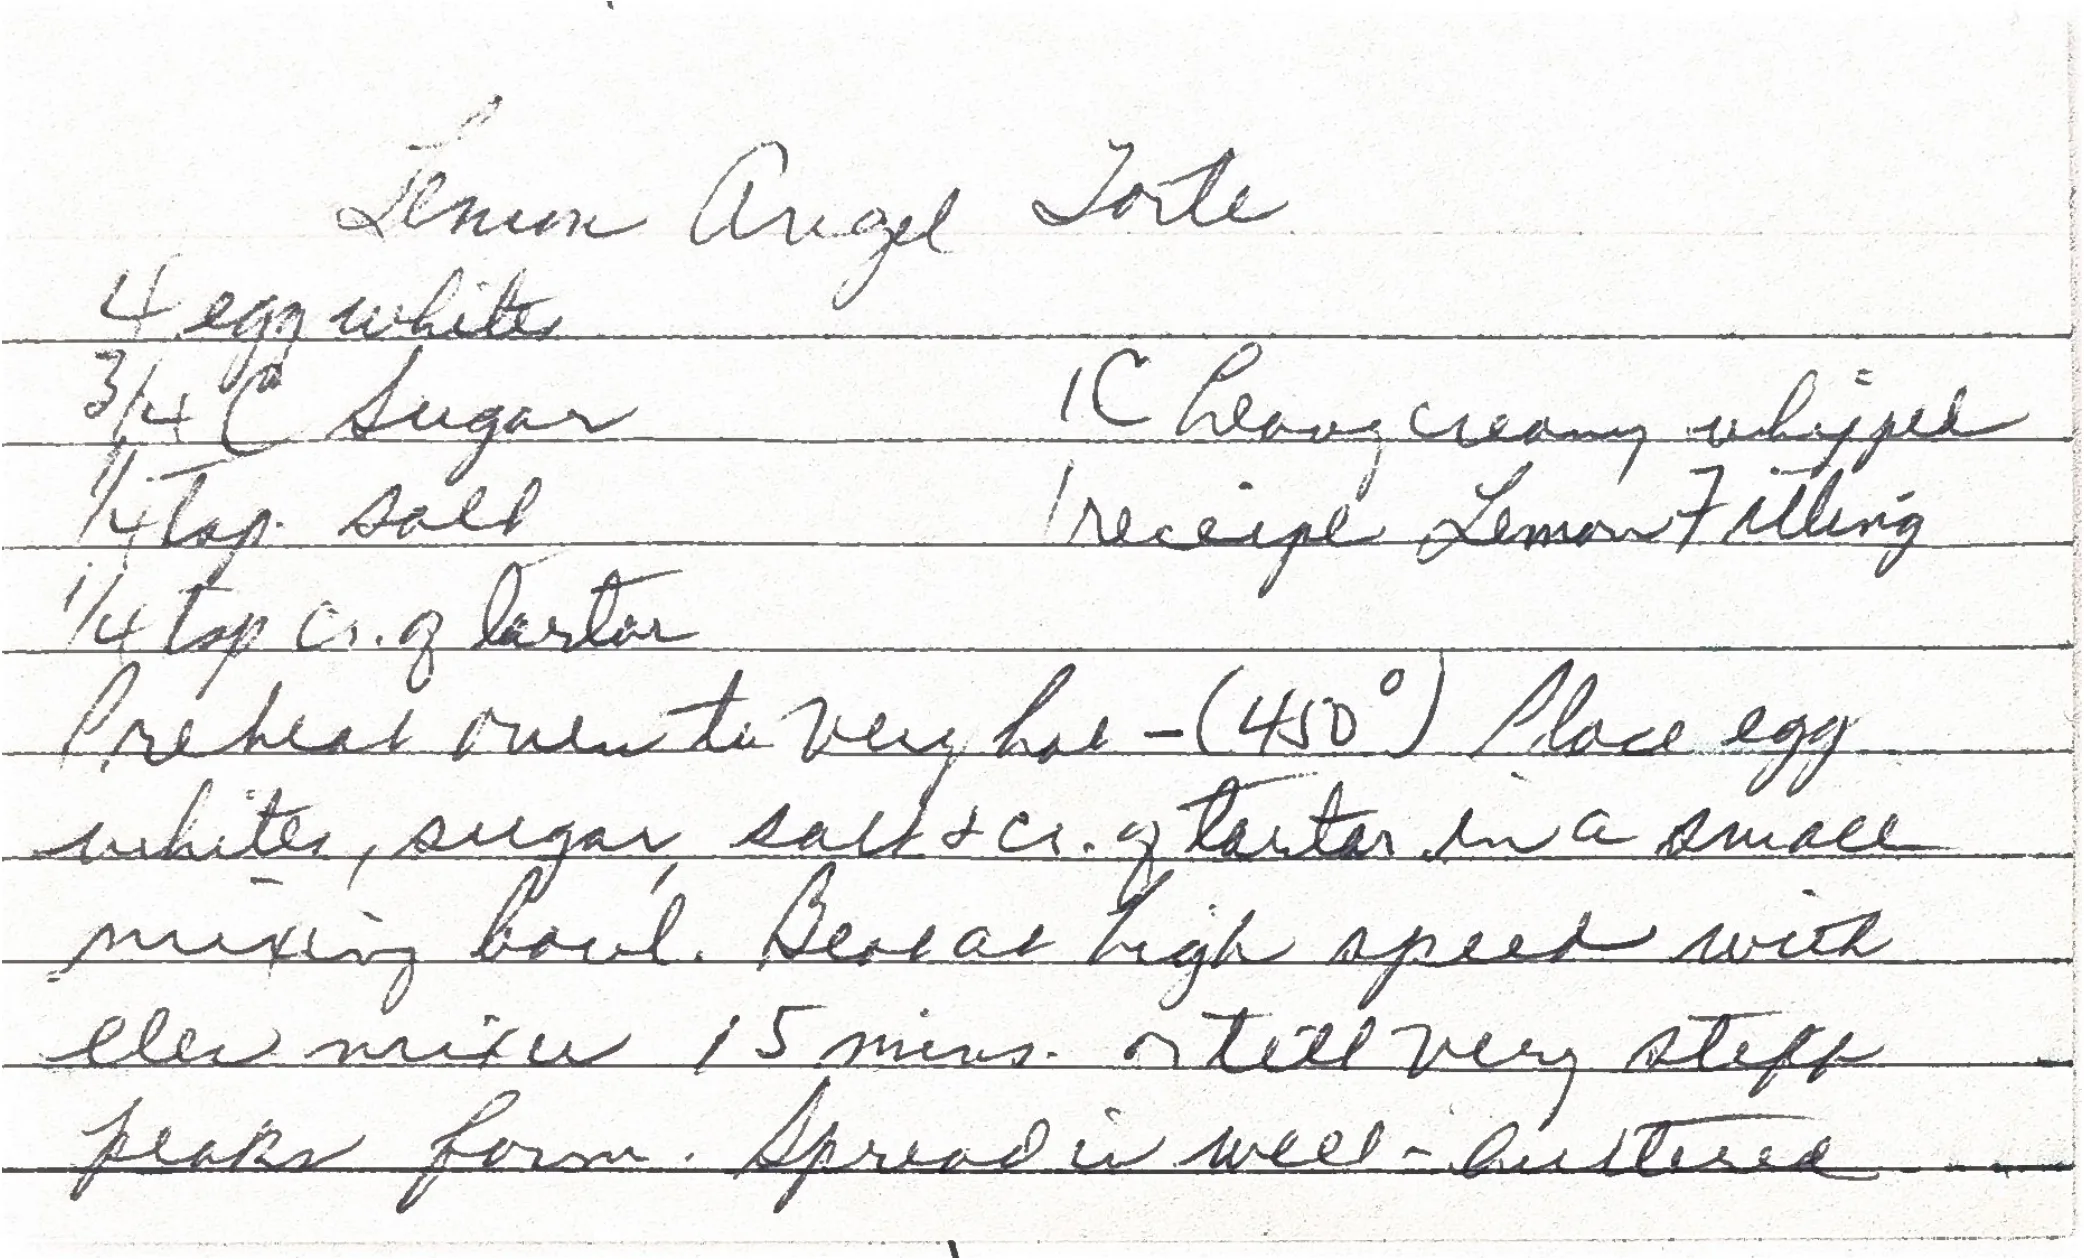 Lemon Angel Torte
4 egg whites
3/4 C Sugar
1 C heavy cream, whipped
1/4 Tsp. salt
1 receipe Lemon Filling
1/4 Tsp cr. of tartar
Preheat oven to very hot - (450°) Place egg
whites, sugar, salt & cr. of tartar in a small
mixing bowl. Beat at high speed with
elec mixer 15 mins. or till very stiff
peaks form. Spread in well-buttered